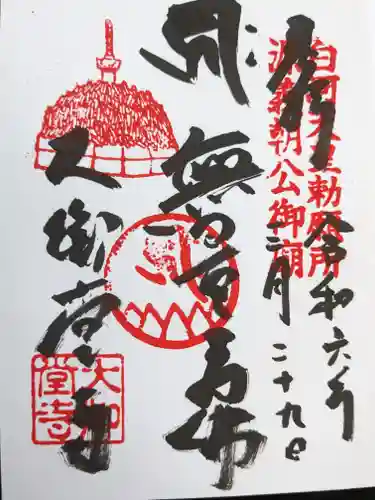 奉拝
白河天皇勅願所
源義朝公御廟
令和六年
三月二十九日
無量寿佛
大御堂寺
大御堂寺